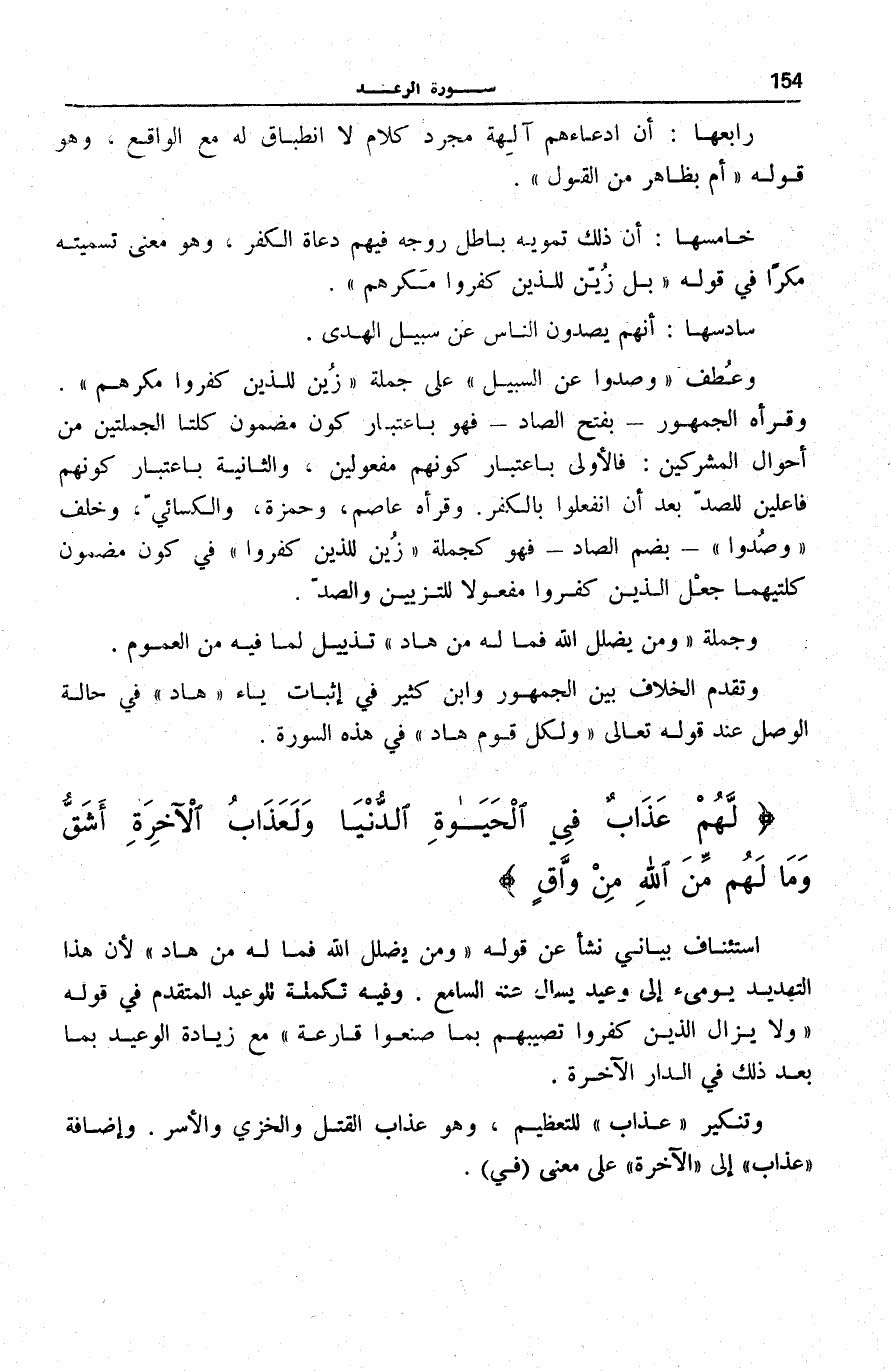 154
سورة الرعد
رابعها : أن ادعاءهم آلهة مجرد كلام لا انطباق له مع الواقع ، وهو
قوله « أم بظاهر من القول » .
خامسها : أن ذلك تمويه باطل روجه فيهم دعاة الكفر ، وهو معنى تسميته
مكرًا في قوله « بل زُيّن للذين كفروا مَكرهم » .
سادسها : أنهم يصدون الناس عن سبيل الهدى .
وعُطف « وصدوا عن السبيل » على جملة « زُين للذين كفروا مكرهم » .
وقرأه الجمهور — بفتح الصاد — فهو باعتبار كون مضمون كلتا الجملتين من
أحوال المشركين : فالأولى باعتبار كونهم مفعولين ، والثانية باعتبار كونهم
فاعلين للصدّ بعد أن انفعلوا بالكفر. وقرأه عاصم، وحمزة، والكسائيّ، وخلف
« وصُدوا » — بضم الصاد — فهو كجملة « زُين للذين كفروا » في كون مضمون
كلتيهما جعْل الذين كفروا مفعولا للتزيين والصدّ .
وجملة « ومن يضلل الله فما له من هاد » تذييل لما فيه من العموم .
وتقدم الخلاف بين الجمهور وابن كثير في إثبات ياء « هاد » في حالة
الوصل عند قوله تعالى « ولكل قوم هاد » في هذه السورة .
﴿ لَّهُمْ عَذَابٌ فِي ٱلْحَيَوٰةِ ٱلدُّنْيَا وَلَعَذَابُ ٱلْآخِرَةِ أَشَقُّ
وَمَا لَهُم مِّنَ ٱللهِ مِنْ وَّاقٍ ﴾
استئناف بياني نشأ عن قوله « ومن يضلل الله فما له من هاد » لأن هذا
التهديد يومىء إلى وعيد يسأل عنه السامع . وفيه تكملة للوعيد المتقدم في قوله
« ولا يزال الذين كفروا تصيبهم بما صنعوا قارعة » مع زيادة الوعيد بما
بعد ذلك في الدار الآخرة .
وتنكير « عذاب » للتعظيم ، وهو عذاب القتل والخزي والأسر . وإضافة
«عذاب» إلى «الآخرة» على معنى (في) .